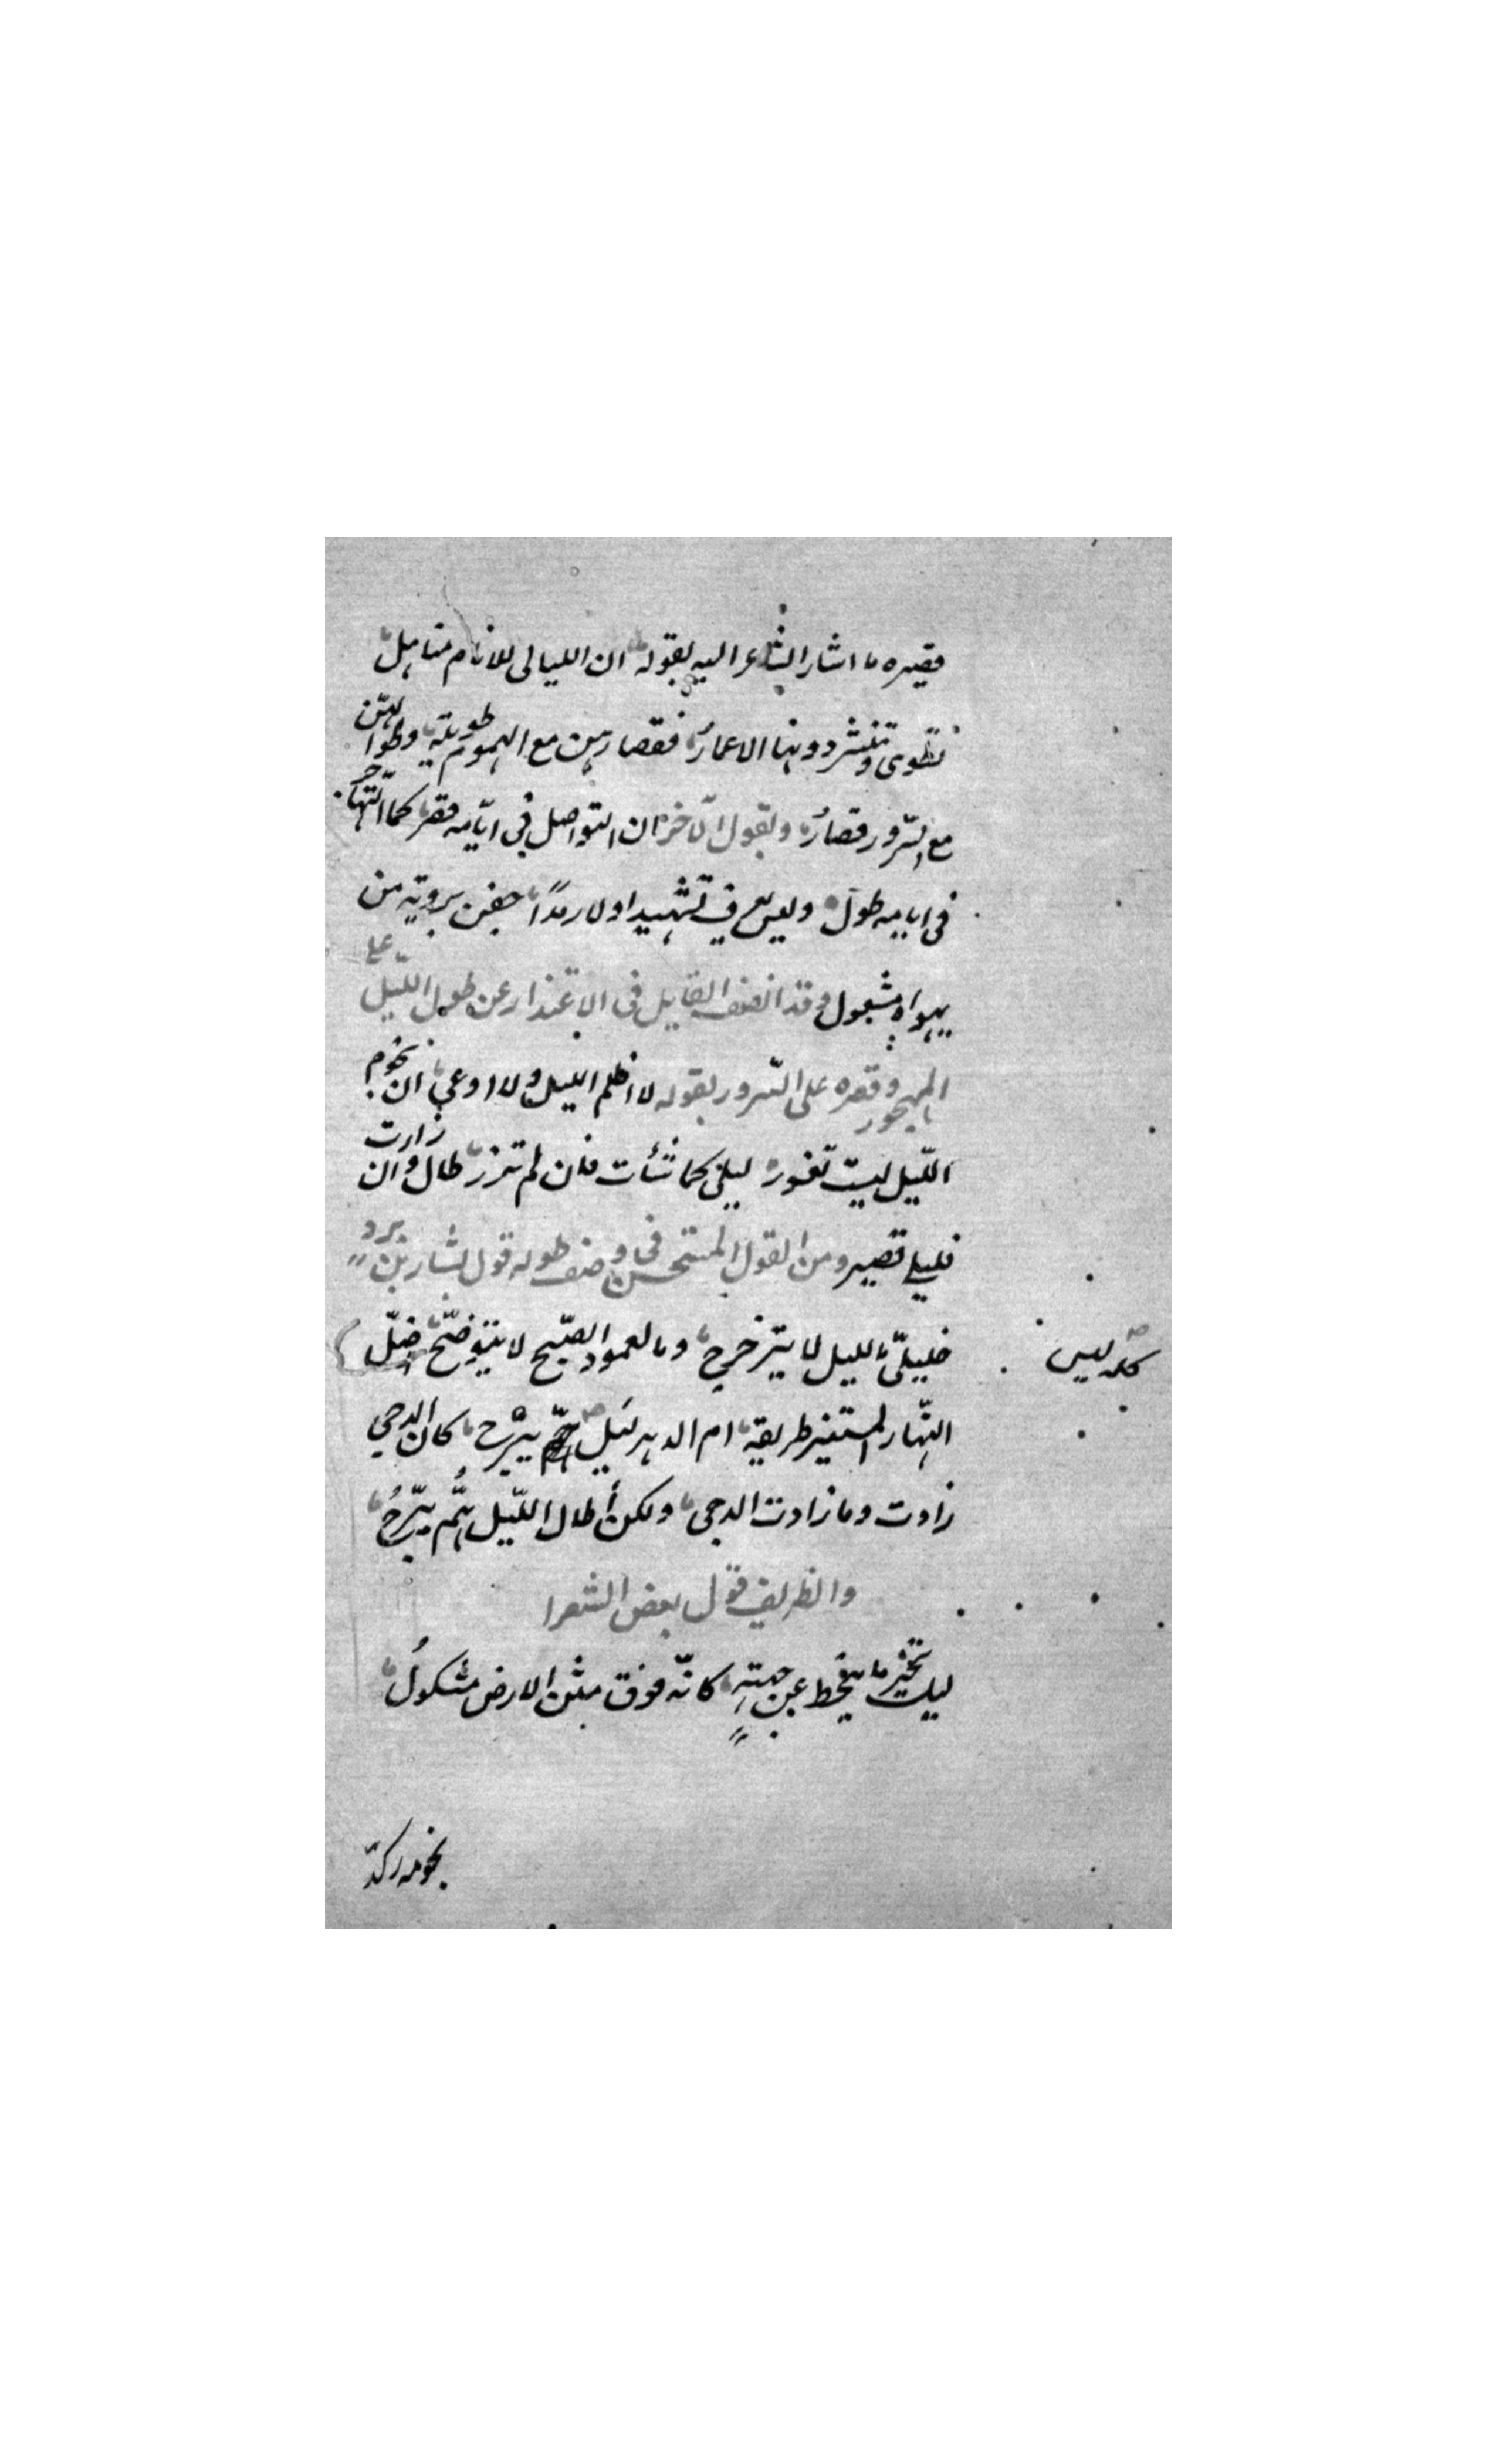 قصيره ما اشار الشاعر اليه بقوله ان الليالى للانام مناهل
تطوى وتنشر دونها الاعمار فقصارهن مع الهموم طويلة وطوالهن
مع السرور قصار وبقول الآخر ان التواصل فى ايامه قصر كما التهاجر
فى ايامه طول وليس يعرف تسهيدا ولا رمدا جفن برويته من
يهواه مشغول وقد انصف القايل فى الاعتذار عن طول الليل على
المهجور وقصره على السرور بقوله لا اظلم الليل ولا ادعى ان نجوم
الليل ليست تغور ليلى كما شأت فان لم تزر طال وان زارت
فليلى قصير ومن القول المستحسن فى وصف طوله قول بشار بن برد
خليلىّ ما لليل لا يتزحزح وما لعمود الصبح لا يتوضح اضلّ
كله ليس
النهار المستنير طريقه ام الدهر ليل يبرح كان الدجى
زادت وما زادت الدجى ولكن أطال الليل همٌّ يبرّحُ
والظريف قول بعض الشعرا
ليل تحير ما ينحط عن جهتهٍ كانّه فوق متن الارض مشكولُ
نجومه ركّد